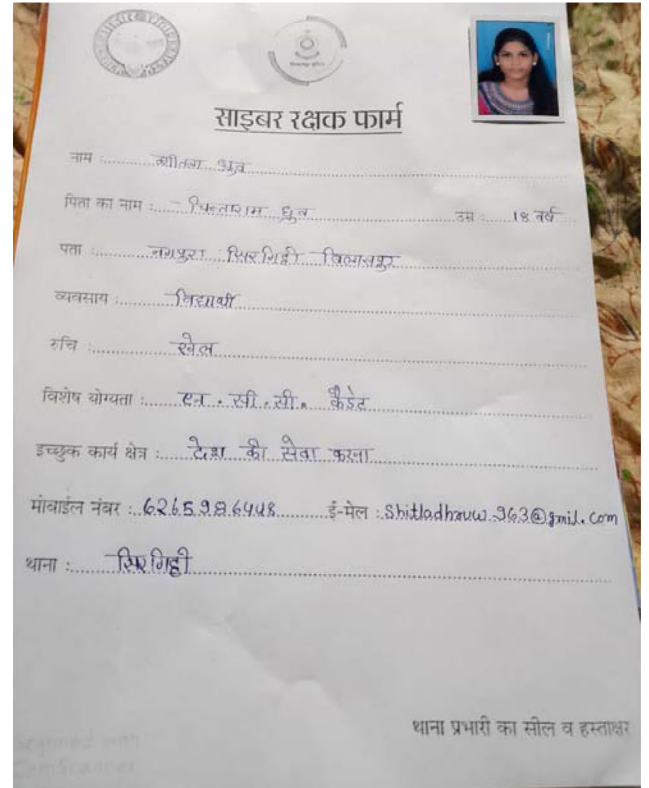 साइबर रक्षक फार्म
नाम : शीतला ध्रुव
पिता का नाम : चिन्ताराम ध्रुव उम्र : 18 वर्ष
पता : नगपुरा सिरगिट्टी बिलासपुर
व्यवसाय : विद्यार्थी
रुचि : खेल
विशेष योग्यता : एन. सी. सी. कैडेट
इच्छुक कार्य क्षेत्र : देश की सेवा करना
मोबाईल नंबर : 6265986448 ई-मेल : Shitladhruw963@gmil.com
थाना : सिरगिट्टी
थाना प्रभारी का सील व हस्ताक्षर
Scanned with
CamScanner